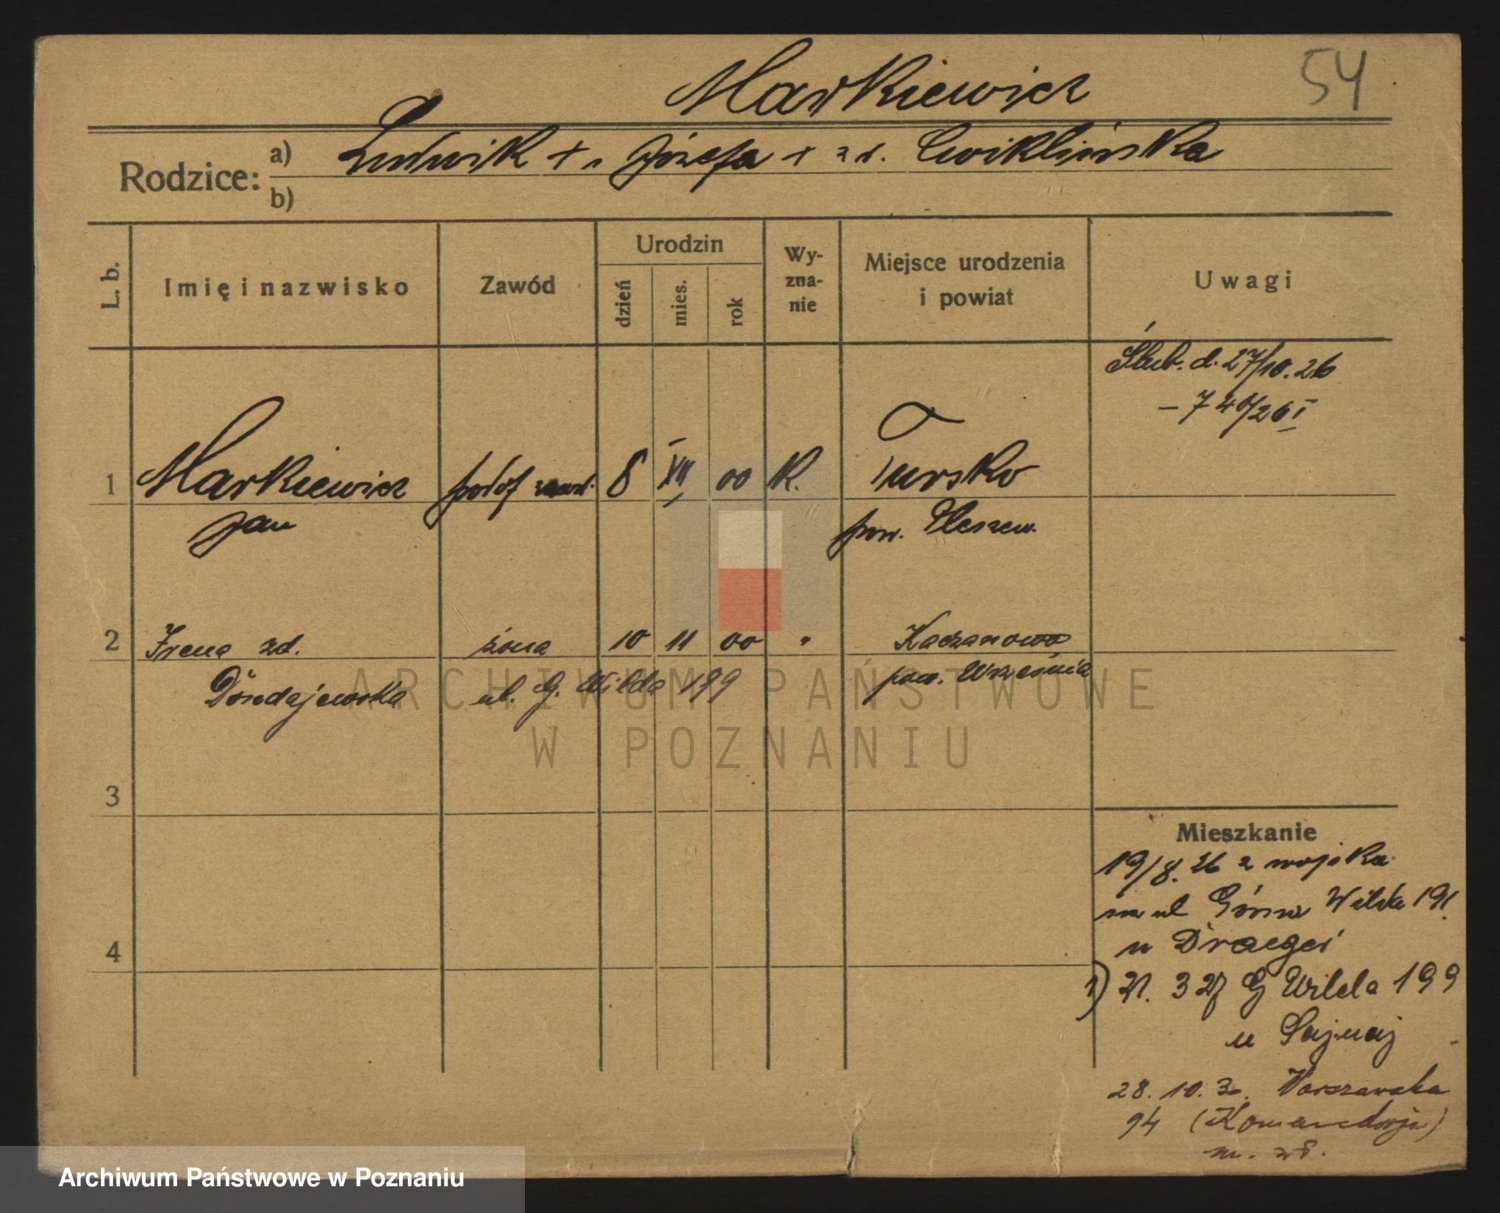 Markiewicz
54
Rodzice: a) Ludwik + i Józefa + zd. Cwiklińska
b)
L. b.
Imię i nazwisko
Zawód
Urodzin
dzień
mies.
rok
Wy-
zna-
nie
Miejsce urodzenia
i powiat
Uwagi
Ślub. d. 27/10. 26
1 Markiewicz podof zawd. 8 XII 00 K. Tursko
Jan pow. Pleszew.
2 Irena zd. żona 10 11 00 " Kaczanowo
ul. G. Wilda 199 pow. Września
3
4
Mieszkanie
19/8. 26 z wojska
ul Górna Wilda 191.
u
1) 21. 3 27 G Wilda 199
u
28. 10. Warszawska
94 (Komandorja)
m.
ARCHIWUM PAŃSTWOWE
W POZNANIU
Archiwum Państwowe w Poznaniu